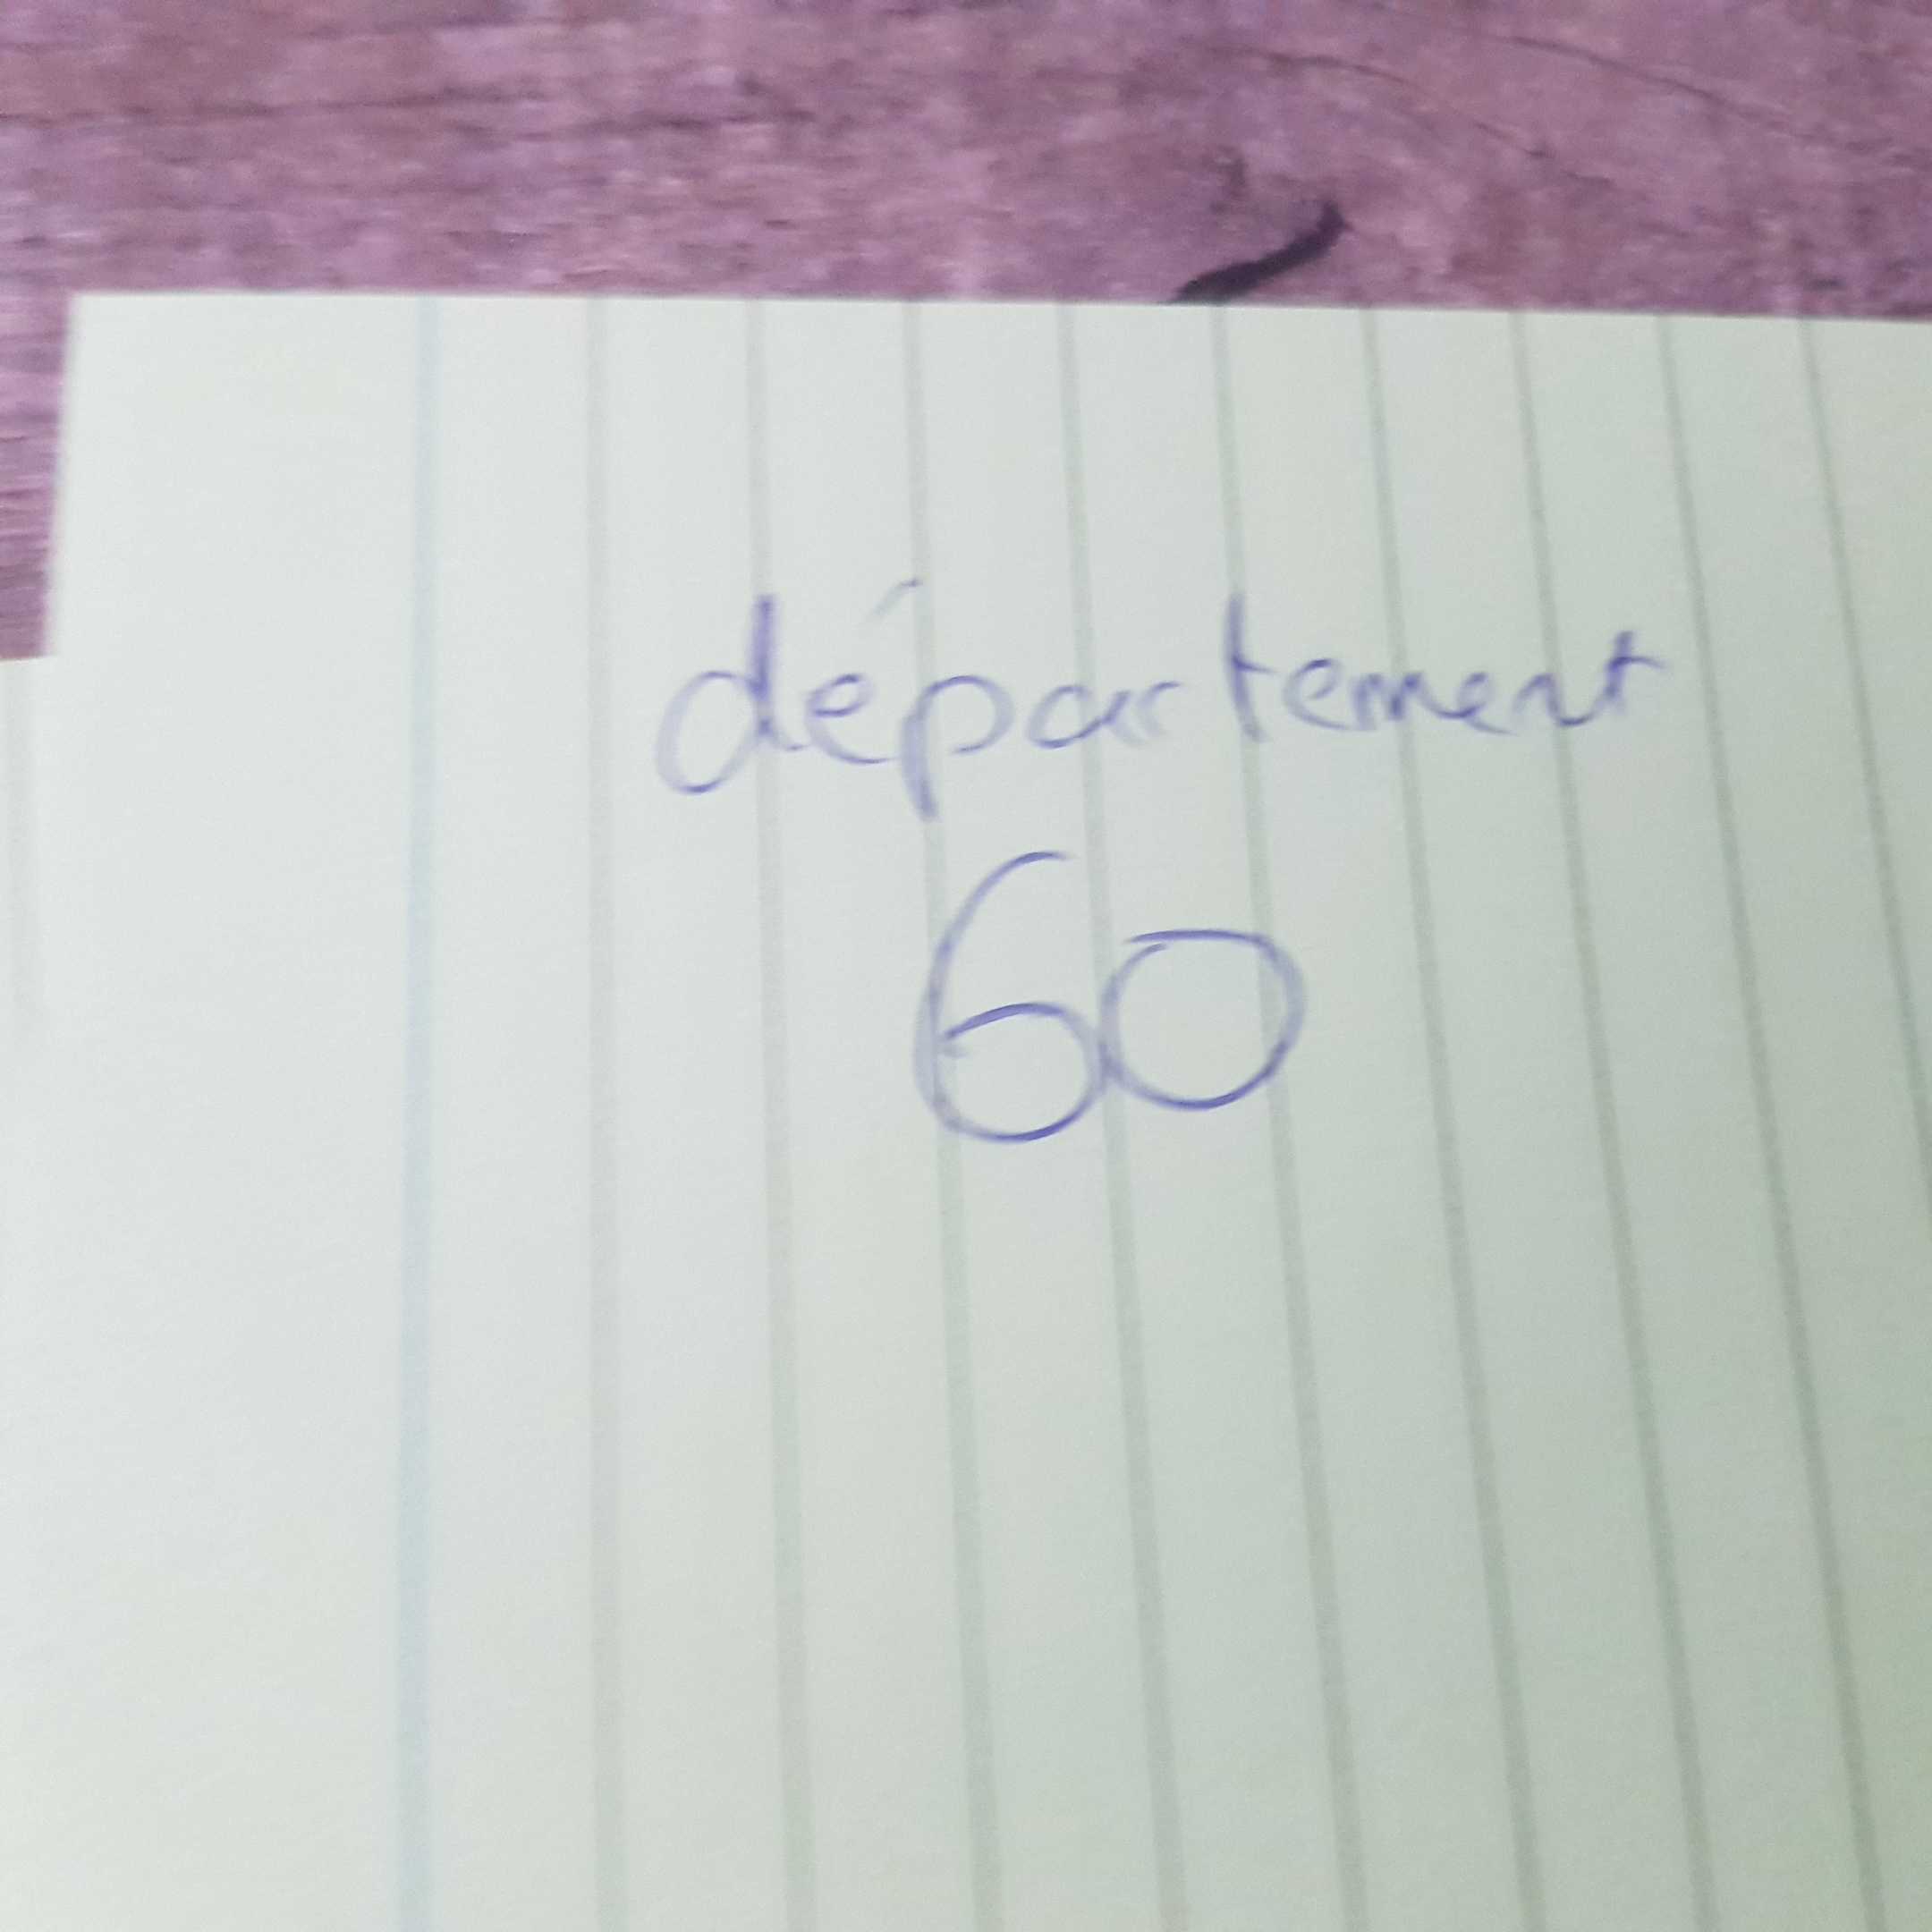 département
60